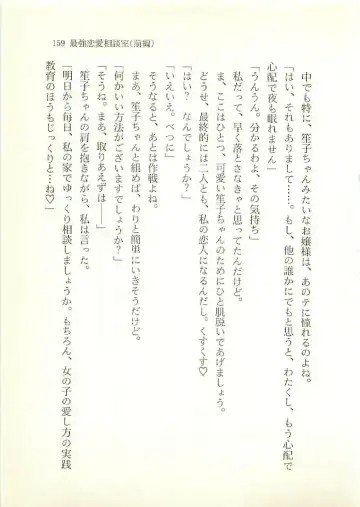 159 最強恋愛相談室(前編)
中でも特に、笙子ちゃんみたいなお嬢様は、あのテに憧れるのよね。
「はい、それもありまして……。もし、他の誰かにでもと思うと、わたくし、もう心配で
心配で夜も眠れません」
「うんうん。分かるわよ、その気持ち」
私だって、早く落とさなきゃと思ってたんだけど。
ま、ここはひとつ、可愛い笙子ちゃんのためにひと肌脱いであげましょう。
どうせ、最終的には二人とも、私の恋人になるんだし。くすくす♡
「はい? なんでしょうか?」
「いえいえ。べつに」
そうなると、あとは作戦よね。
まあ、笙子ちゃんと組めば、わりと簡単にいきそうだけど。
「何かいい方法がございますでしょうか?」
「そうね。まあ、取りあえずは――」
笙子ちゃんの肩を抱きながら、私は言った。
「明日から毎日、私の家でゆっくり相談しましょうか。もちろん、女の子の愛し方の実践
教育のほうもじっくりと…ね♡」